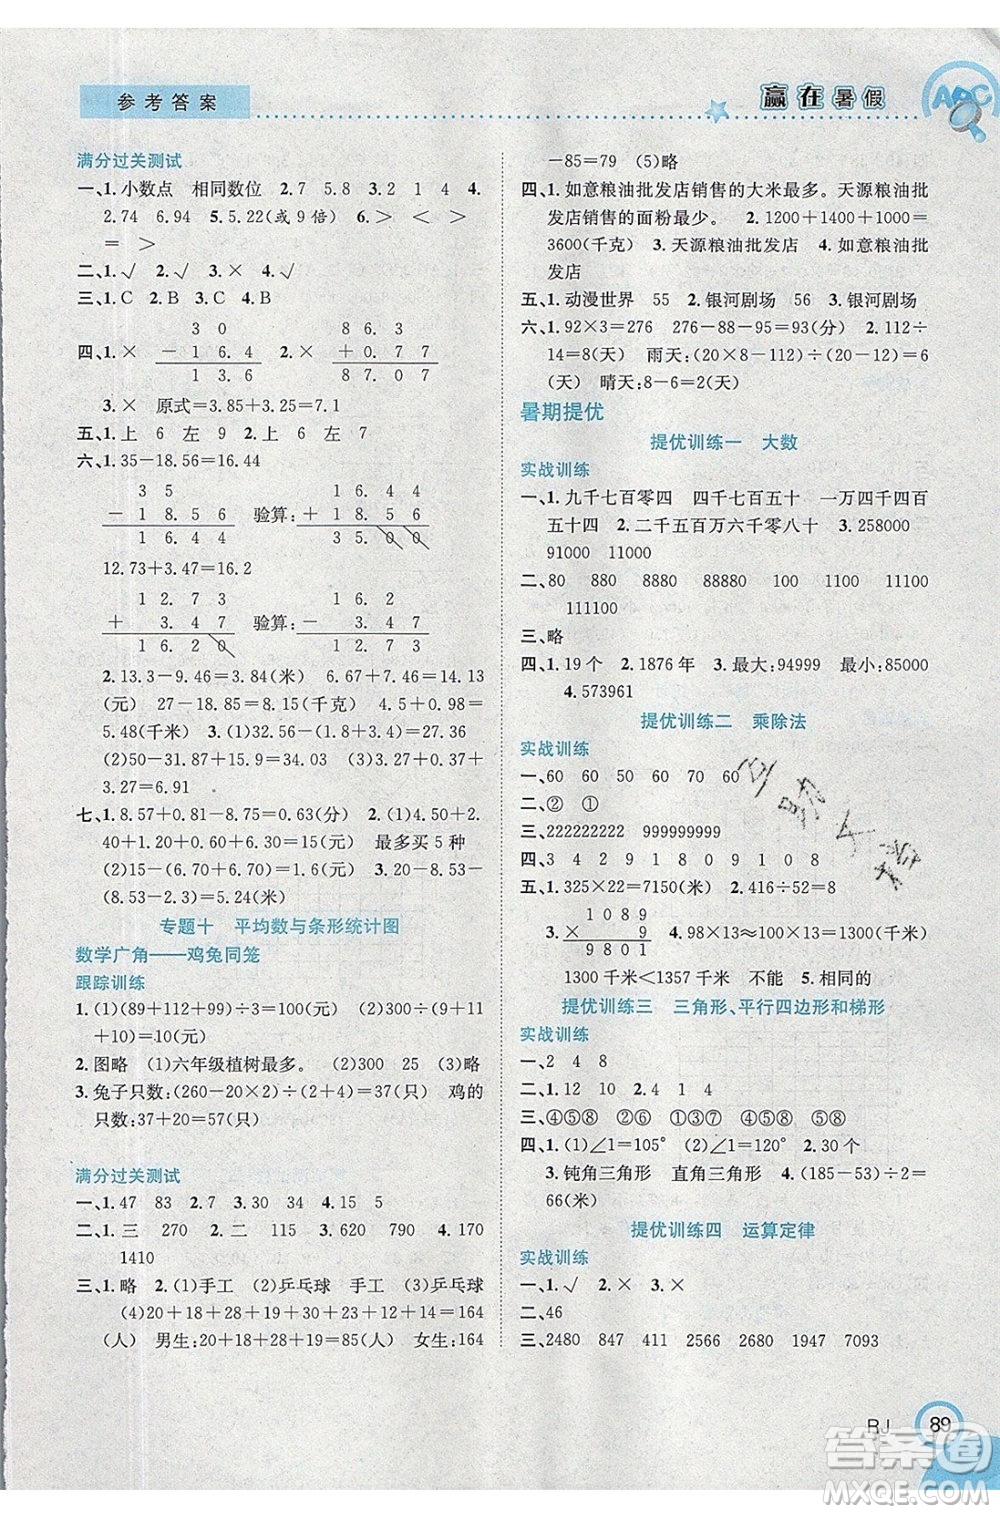 参考答案
赢在暑假
ABC
满分过关测试
一、1.小数点 相同数位 2.7 5.8 3.2 1 4 4.
2.74 6.94 5.5.22(或9倍) 6.> < >
= >
二、1.√ 2.√ 3.× 4.√
三、1.C 2.B 3.C 4.B
3 0 8 6.3
四、1.× － 1 6. 4 2.× ＋ 0. 7 7
1 3. 6 8 7. 0 7
3.× 原式=3.85+3.25=7.1
五、1.上 6 左 9 2.上 6 左 7
六、1.35-18.56=16.44
3 5 1 6. 4 4
－ 1 8. 5 6 验算: ＋ 1 8. 5 6
1 6. 4 4 3 5. 0 0
12.73+3.47=16.2
1 2. 7 3 1 6. 2
＋ 3. 4 7 验算: － 3. 4 7
1 6. 2 0 1 2. 7 3
2.13.3-9.14=4.16(米) 6.67+7.97=14.64
(元) 27-18.85=8.15(千克) 4.02+1.46=
5.48(千米) 3.(1)20.52+3.42+3.42=27.36
(2)50-31.87-12.68=5.45 (3)3.64-(4-
3.27)=2.91 (4)8.46-(5.25-3.7)=8.46-5.25
+3.7=6.91
七、1.8.57+0.81-8.75=0.63(分) 2.(1)4.85+2.
40+1.43+0.92=9.6(元) 最多买5种
(2)10-4.85-2.40=2.75(元) 3.20-8.53-
(8.53-2.3)=5.24(米)
专题十 平均数与条形统计图
数学广角——鸡兔同笼
跟踪训练
1.(1)(89+112+99)÷3=100(元) (2)(91+9
+10)=10(元)
2.图略 (1)六年级植树最多。 (2)300 25 (3)略
3.兔子只数:(260-20×2)÷(2+4)=37(只) 鸡的
只数:37+20=57(只)
满分过关测试
一、1.47 83 2.7 3.30 4.15 5
二、1.三 270 2.二 3.620 790 4.170
1410
三、1.略 2.(1)手工 (2)乒乓球 手工 (3)乒乓球
(4)20+18+28+19+30+23+12+14=164
(人) 男生:20+18+28+19=85(人) 女生:164
-85=79 (5)略
四、1.如意粮油批发店销售的大米最多。天源粮油批
发店销售的面粉最少。 2.1200+1400+1000=
3600(千克) 3.天源粮油批发店 4.如意粮油批
发店
五、1.动漫世界 55 2.银河剧场 56 3.银河剧场
六、1.92×3=276 276-88-95=93(分) 2.112÷
14=8(天) 雨天:(20×8-112)÷(20-12)=6
(天) 晴天:8-6=2(天)
暑期提优
提优训练一 大数
实战训练
一、1.九千七百零四 四千七百五十 一万四千四百
五十四 2.二千五百万六千零八十 3.258000
91000 11000
二、80 880 8880 88880 100 1100 11100
111100
三、略
四、1.19个 2.1876年 3.最大:94999 最小:85000
4.573961
提优训练二 乘除法
实战训练
一、60 60 50 60 70 60
二、② ①
三、222222222 999999999
四、3 4 2 9 1 8 0 9 1 0 8
五、1.325×22=7150(米) 2.416÷52=8
1 0 8 9
3. × 9 4.98×13≈1300(千米)
9 8 0 1
1300千米<1357千米 不能 5.相同的
提优训练三 三角形、平行四边形和梯形
实战训练
一、2 4 8
二、1.12 10 2.4 3.5 4.5
三、④⑤⑧ ②⑥ ①③⑦ ④⑤⑧
四、1.(1)∠1=105° (2)∠1=120° 2.30个
3.钝角三角形 直角三角形 4.(185-53)÷2=
66(米)
提优训练四 运算定律
实战训练
一、1.√ 2.× 3.×
二、46
三、2480 847 411 2566 2680 1947 7093
RJ 89
答案圈
MXQE.COM